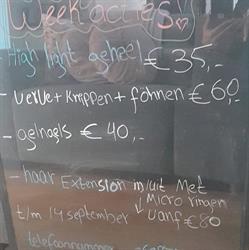 Weekacties!
- High light geheel € 35,-
- verve + knippen + föhnen € 60,-
- gelnagels € 40,-
- haar Extension in/uit Met
Micro ringen
t/m 14 september vanf €80
telefoonnummer